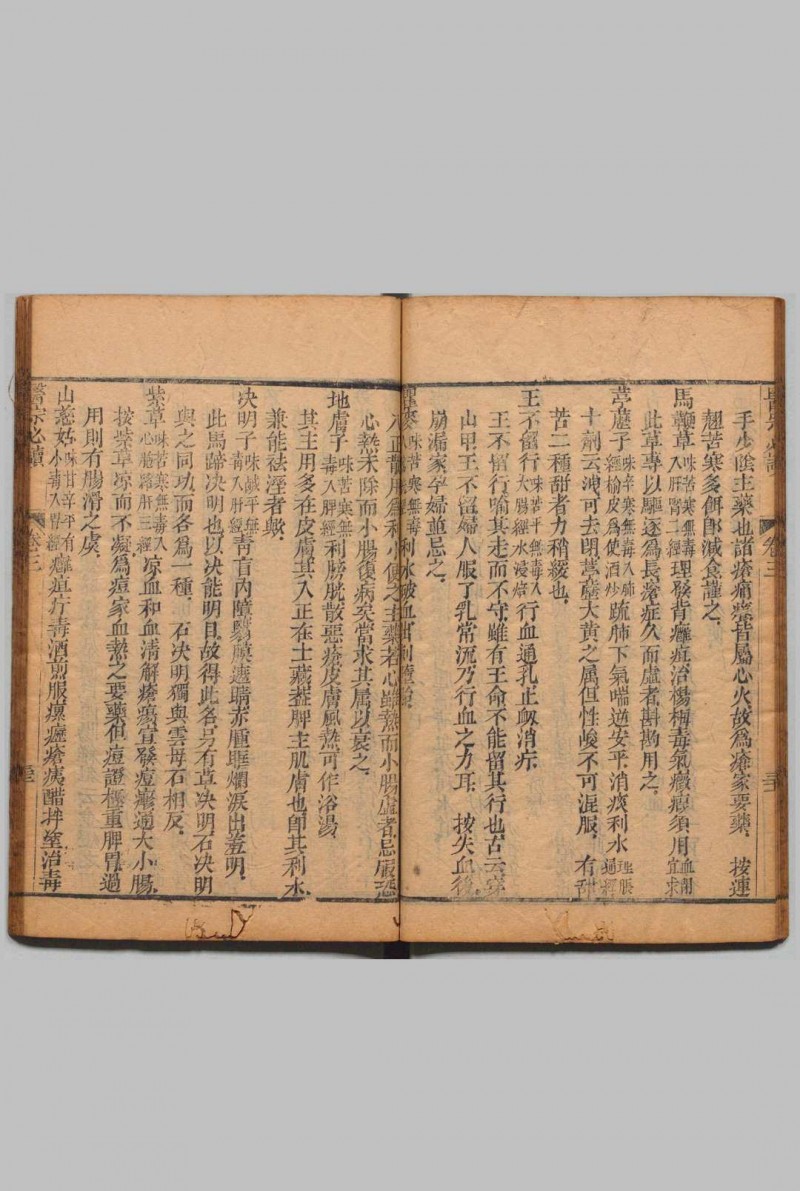 手少陰主藥也諸瘡痛癢皆屬心火故爲瘡家要藥 按連
翹苦寒多餌卽減食謹之
馬鞭草味苦寒無毒入肝腎二經理發背癰疽治楊梅毒氣癥瘕須用血閉宜求
此草專以驅逐爲長瘡症久而虛者斟酌用之
葶藶子味辛寒無毒入肺經榆皮爲使酒炒疏肺下氣喘逆安平消痰利水理脹通經
十劑云洩可去閉葶藶大黃之属但性峻不可混服 有甜
苦二種甜者力稍緩也
王不留行味苦平無毒入大腸經水浸焙行血通乳止衂消疔
王不留行喻其走而不守雖有王命不能留其行也古云穿
山甲王不留婦人服了乳常流乃行血之力耳 按失血後
崩漏家孕婦並忌之
瞿麥味苦寒無毒利水破血
八正散用爲利小便之主藥若心雖熱而小腸虛者忌服恐
心熱未除而小腸復病矣當求其属以衰之
地膚子味苦寒無毒入脾經利膀胱散惡瘡皮膚風熱可作浴湯
其主用多在皮膚其入正在土藏葢脾主肌膚也卽其利水
兼能祛溼者歟
决明子味鹹平無毒入肝經靑盲內障翳膜遮睛赤腫眶爛淚出羞明
此馬蹄决明也以决能明目故得此名另有草决明石决明
與之同功而各爲一種 石决明獨與雲母石相反
紫草味苦寒無毒入心胞絡肝三經凉血和血淸解瘡瘍宣發痘疹通大小腸
按紫草凉而不凝爲痘家血熱之要藥但痘證極重脾胃過
用則有腸滑之虞
醫宗必讀 卷三
山慈姑味甘辛平有小毒入胃經癰疽疔毒酒煎服瘰癧瘡痍醋拌塗治毒